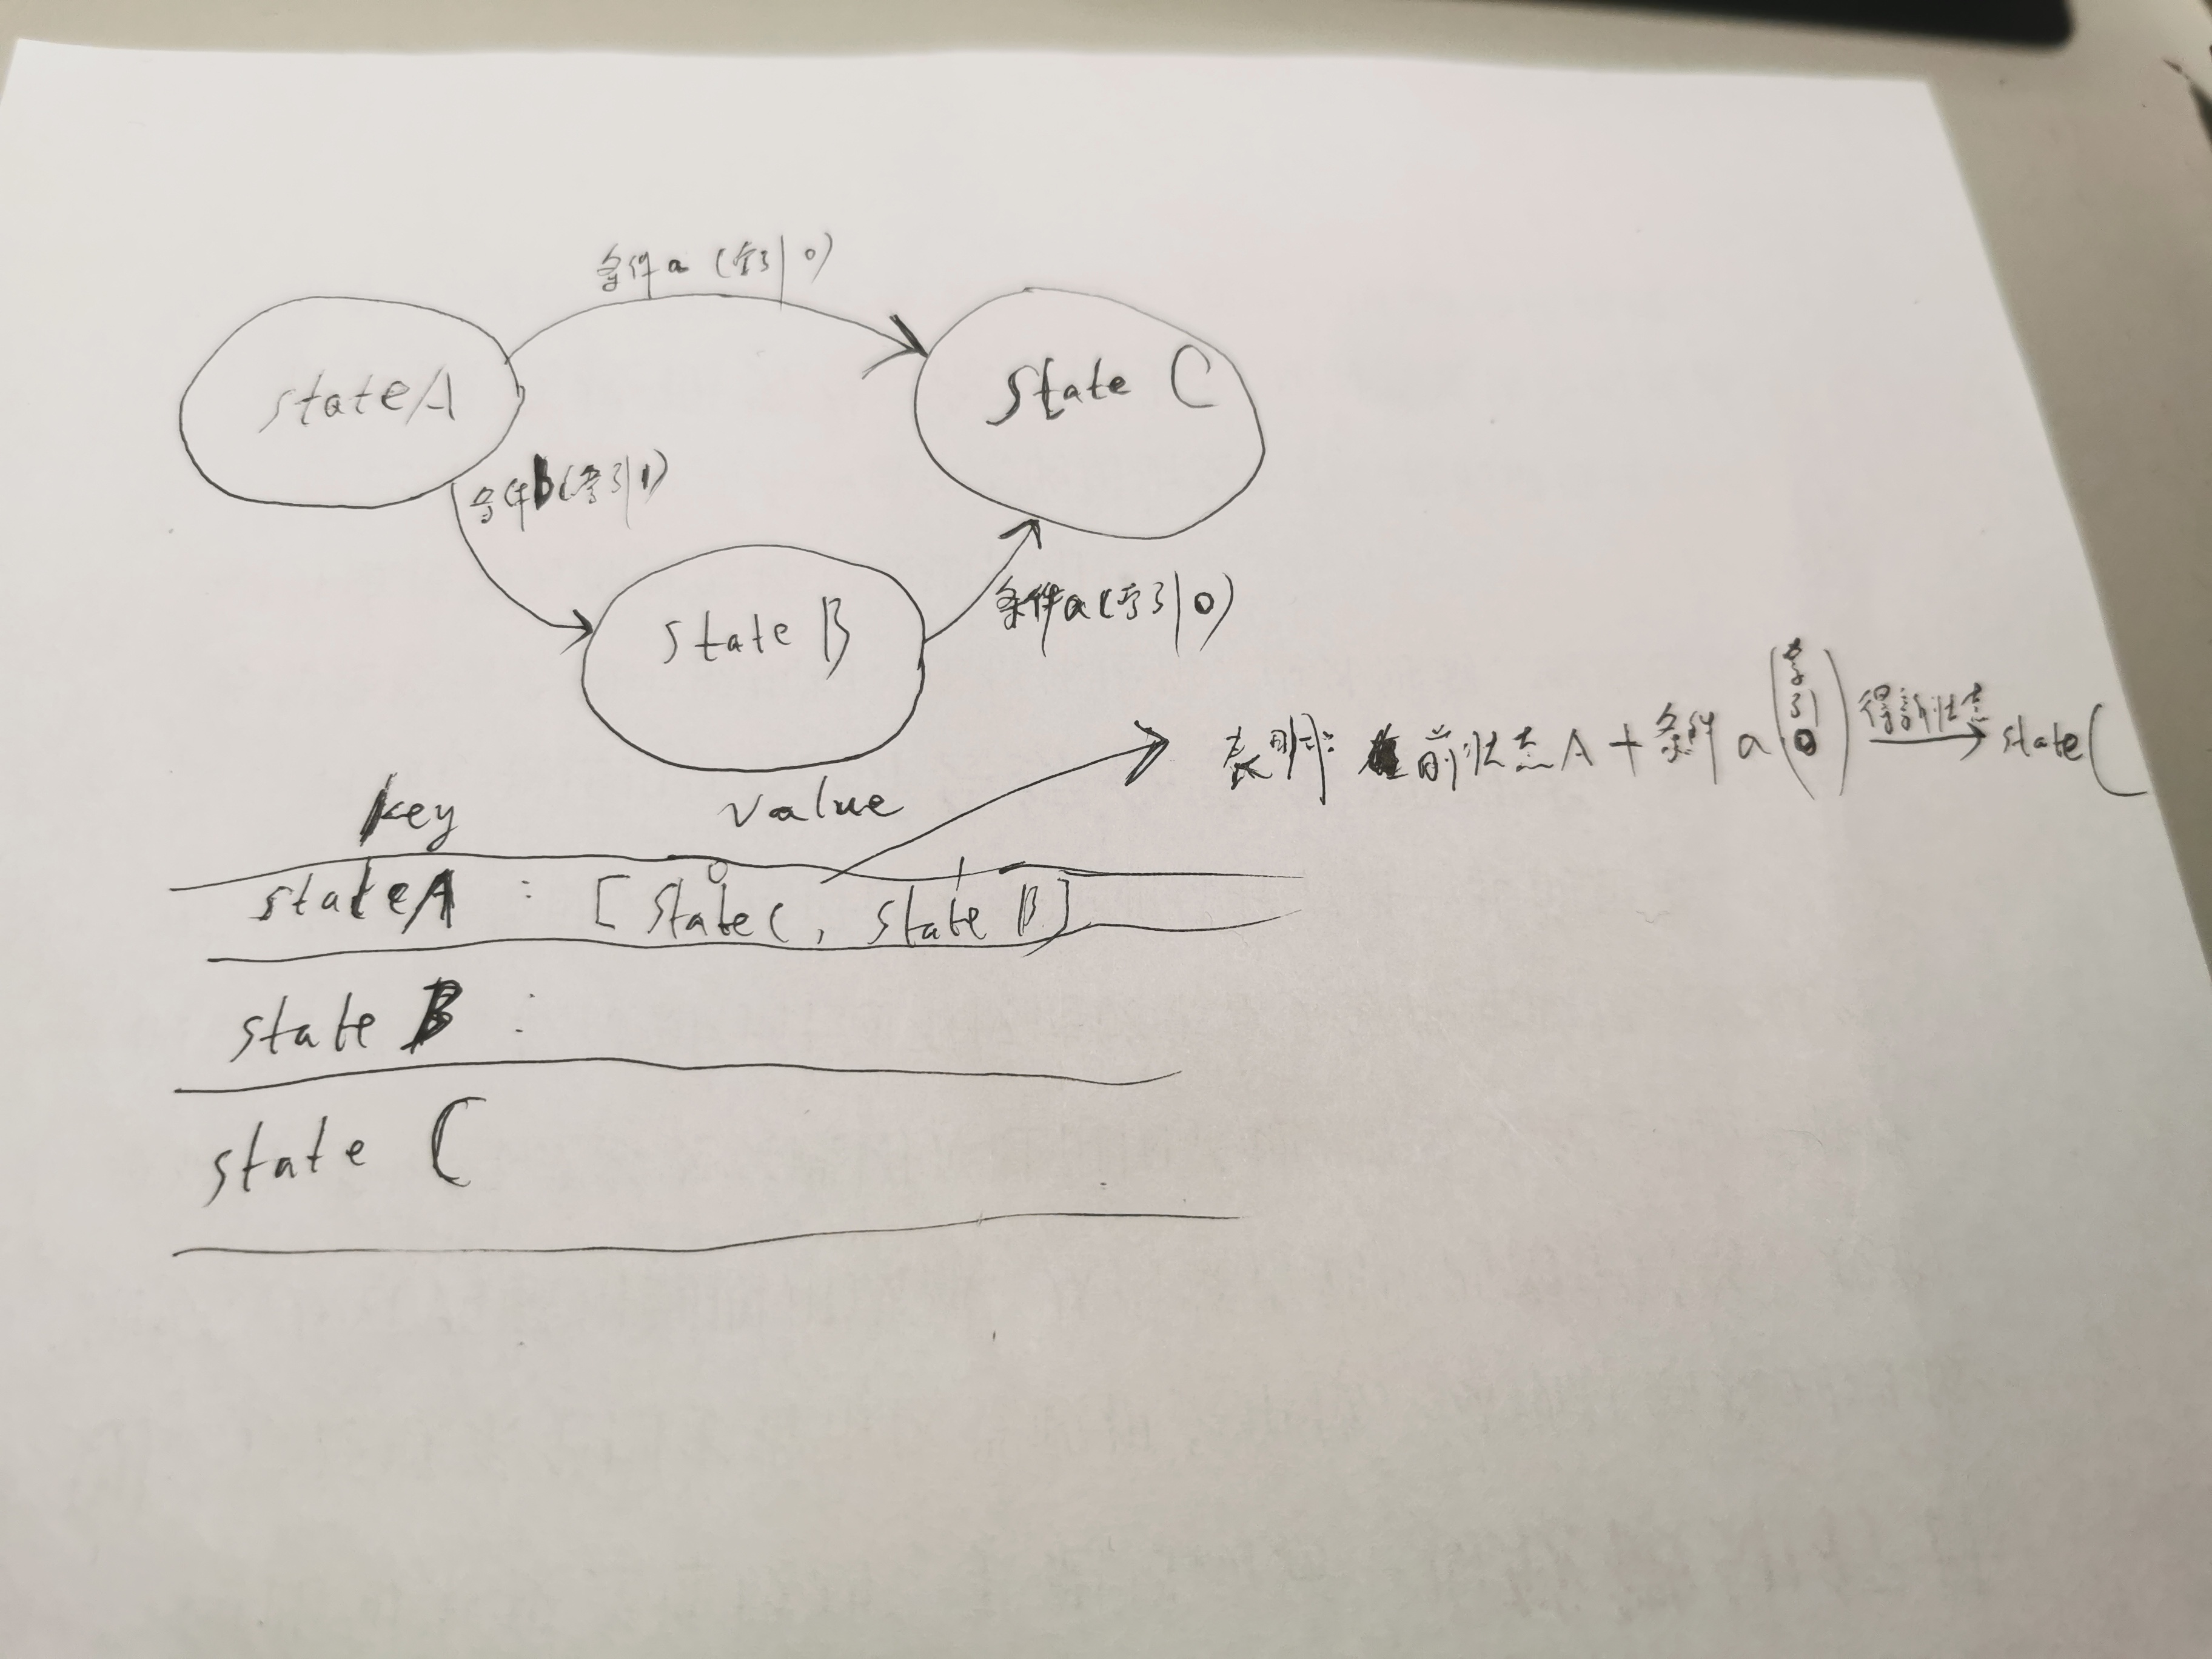 条件a(索引0)
stateA
state C
条件b(索引1)
state B
条件a(索引0)
表明: 前状态A+条件a(索引0) 得新状态 state C
key value
0 1
stateA : [state C, state B]
state B :
state C